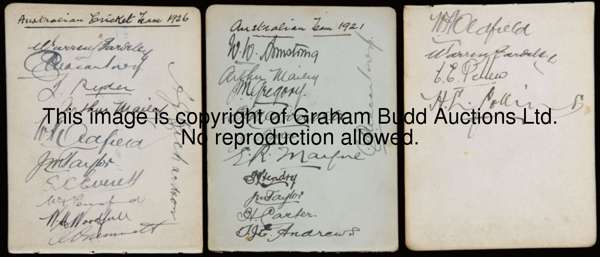 Australian Cricket Team 1926
Warren Bardsley
C Macartney
J Ryder
Arthur Mailey
W A Oldfield
J M Taylor
S C Everett
W M Woodfull
A J Richardson
Australian Team 1921
W. W. Armstrong
Arthur Mailey
J M Gregory
E. R. Mayne
H L Hendry
J M Taylor
H Carter
T J E Andrews
C Macartney
W A Oldfield
Warren Bardsley
C. E. Pellew
H L Collins
This image is copyright of Graham Budd Auctions Ltd.
No reproduction allowed.